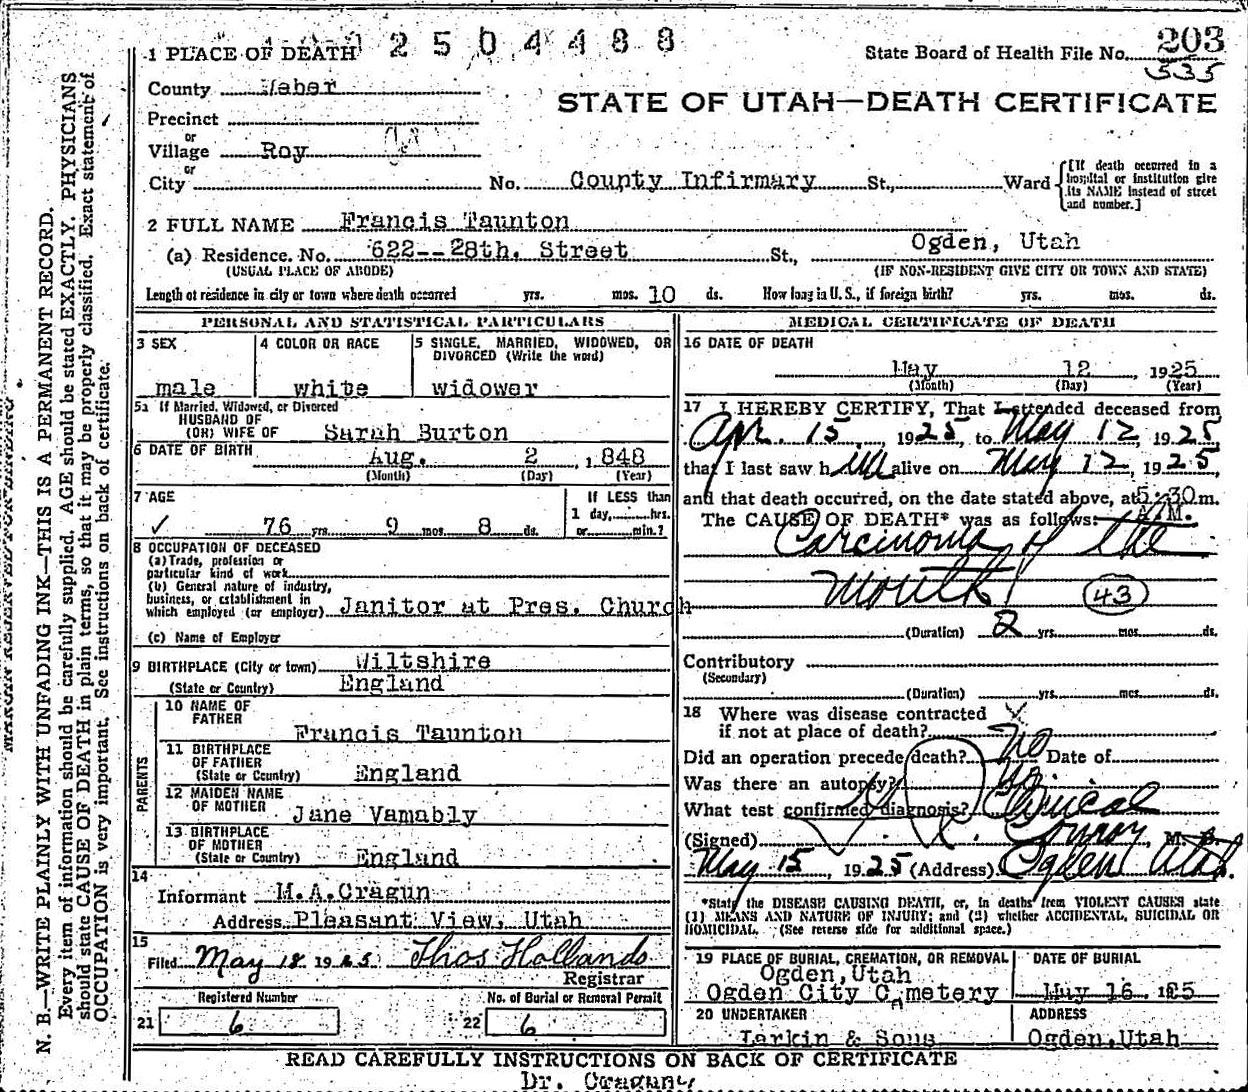 2504488
State Board of Health File No. 203
535
1 PLACE OF DEATH
County Weber
STATE OF UTAH—DEATH CERTIFICATE
Precinct
or
Village Roy
or
City No. County Infirmary St., Ward
[If death occurred in a hospital or institution give its NAME instead of street and number.]
2 FULL NAME Francis Taunton
(a) Residence. No. 622--28th. Street St., Ogden, Utah
(USUAL PLACE OF ABODE) (IF NON-RESIDENT GIVE CITY OR TOWN AND STATE)
Length of residence in city or town where death occurred yrs. mos. 10 ds. How long in U. S., if foreign birth? yrs. mos. ds.
PERSONAL AND STATISTICAL PARTICULARS
3 SEX
male
4 COLOR OR RACE
white
5 SINGLE, MARRIED, WIDOWED, OR DIVORCED (Write the word)
widower
5a If Married, Widowed, or Divorced
HUSBAND OF
(OR) WIFE OF Sarah Burton
6 DATE OF BIRTH Aug. 2, 1848
(Month) (Day) (Year)
7 AGE
✓ 76 yrs. 9 mos. 8 ds.
If LESS than
1 day, hrs.
or min.?
8 OCCUPATION OF DECEASED
(a) Trade, profession or
particular kind of work
(b) General nature of industry,
business, or establishment in
which employed (or employer) Janitor at Pres. Church
(c) Name of Employer
9 BIRTHPLACE (City or town) Wiltshire
(State or Country) England
PARENTS
10 NAME OF
FATHER Francis Taunton
11 BIRTHPLACE
OF FATHER
(State or Country) England
12 MAIDEN NAME
OF MOTHER Jane Vamably
13 BIRTHPLACE
OF MOTHER
(State or Country) England
14
Informant M.A.Cragun
Address Pleasant View, Utah
15
Filed May 18 1925 Thos Hollands
Registrar
Registered Number
21 6
No. of Burial or Removal Permit
22 6
MEDICAL CERTIFICATE OF DEATH
16 DATE OF DEATH
May 12, 1925
(Month) (Day) (Year)
17 I HEREBY CERTIFY, That I attended deceased from
Apr. 15, 1925, to May 12, 1925,
that I last saw him alive on May 12, 1925,
and that death occurred, on the date stated above, at 5:30 m.
The CAUSE OF DEATH* was as follows: A.M.
Carcinoma of the
Mouth
43
(Duration) 2 yrs. mos. ds.
Contributory
(Secondary)
(Duration) yrs. mos. ds.
18 Where was disease contracted
if not at place of death?
Did an operation precede death? No Date of
Was there an autopsy? No
What test confirmed diagnosis? Clinical
(Signed) Conroy M. D.
May 15, 1925 (Address) Ogden Utah.
*State the DISEASE CAUSING DEATH, or, in deaths from VIOLENT CAUSES state
(1) MEANS AND NATURE OF INJURY; and (2) whether ACCIDENTAL, SUICIDAL OR
HOMICIDAL. (See reverse side for additional space.)
19 PLACE OF BURIAL, CREMATION, OR REMOVAL
Ogden,Utah
Ogden City Cemetery
DATE OF BURIAL
May 16, 1925
20 UNDERTAKER
Larkin & Sons
ADDRESS
Ogden,Utah
READ CAREFULLY INSTRUCTIONS ON BACK OF CERTIFICATE
Dr. Cragun
MARGIN RESERVED FOR BINDING
N. B.—WRITE PLAINLY WITH UNFADING INK—THIS IS A PERMANENT RECORD.
Every item of information should be carefully supplied. AGE should be stated EXACTLY. PHYSICIANS
should state CAUSE OF DEATH in plain terms, so that it may be properly classified. Exact statement of
OCCUPATION is very important. See instructions on back of certificate.